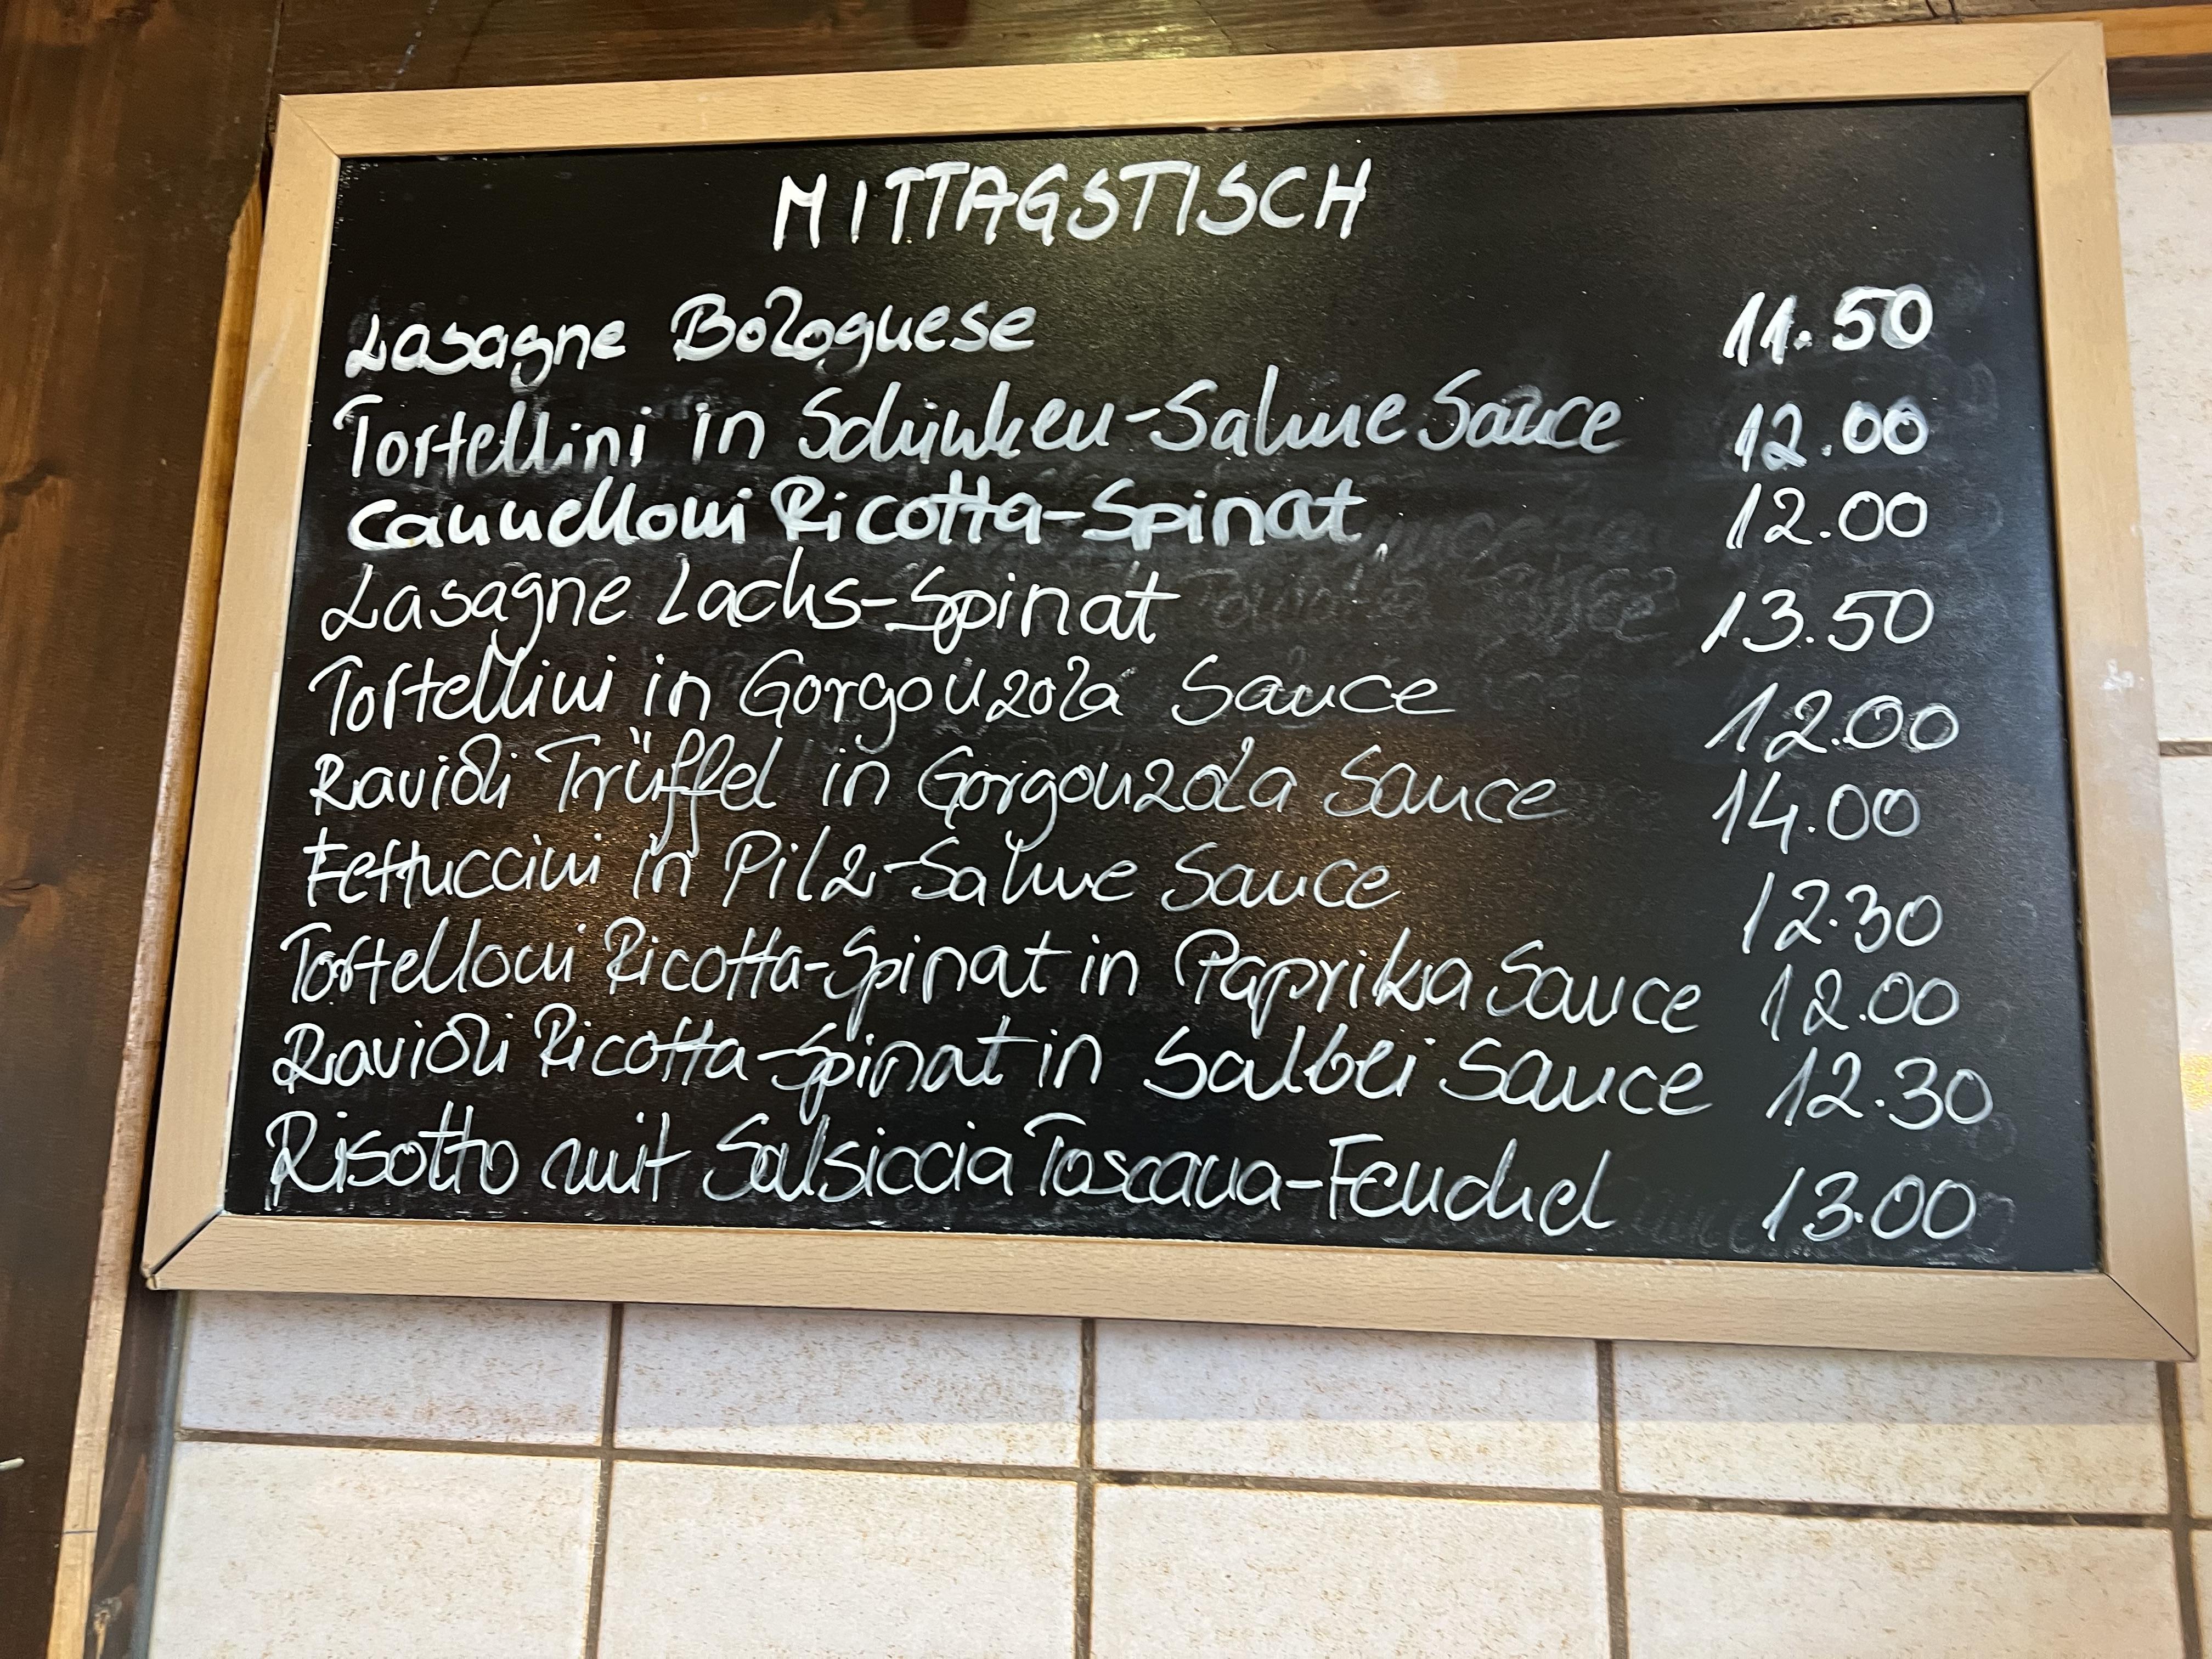 MITTAGSTISCH
Lasagne Bolognese 11.50
Tortellini in Schinken-Sahne Sauce 12.00
Cannelloni Ricotta-Spinat 12.00
Lasagne Lachs-Spinat 13.50
Tortellini in Gorgonzola Sauce 12.00
Ravioli Trüffel in Gorgonzola Sauce 14.00
Fettuccini in Pilz-Sahne Sauce 12.30
Tortelloni Ricotta-Spinat in Paprika Sauce 12.00
Ravioli Ricotta-Spinat in Salbei Sauce 12.30
Risotto mit Salsiccia Toscana-Fenchel 13.00